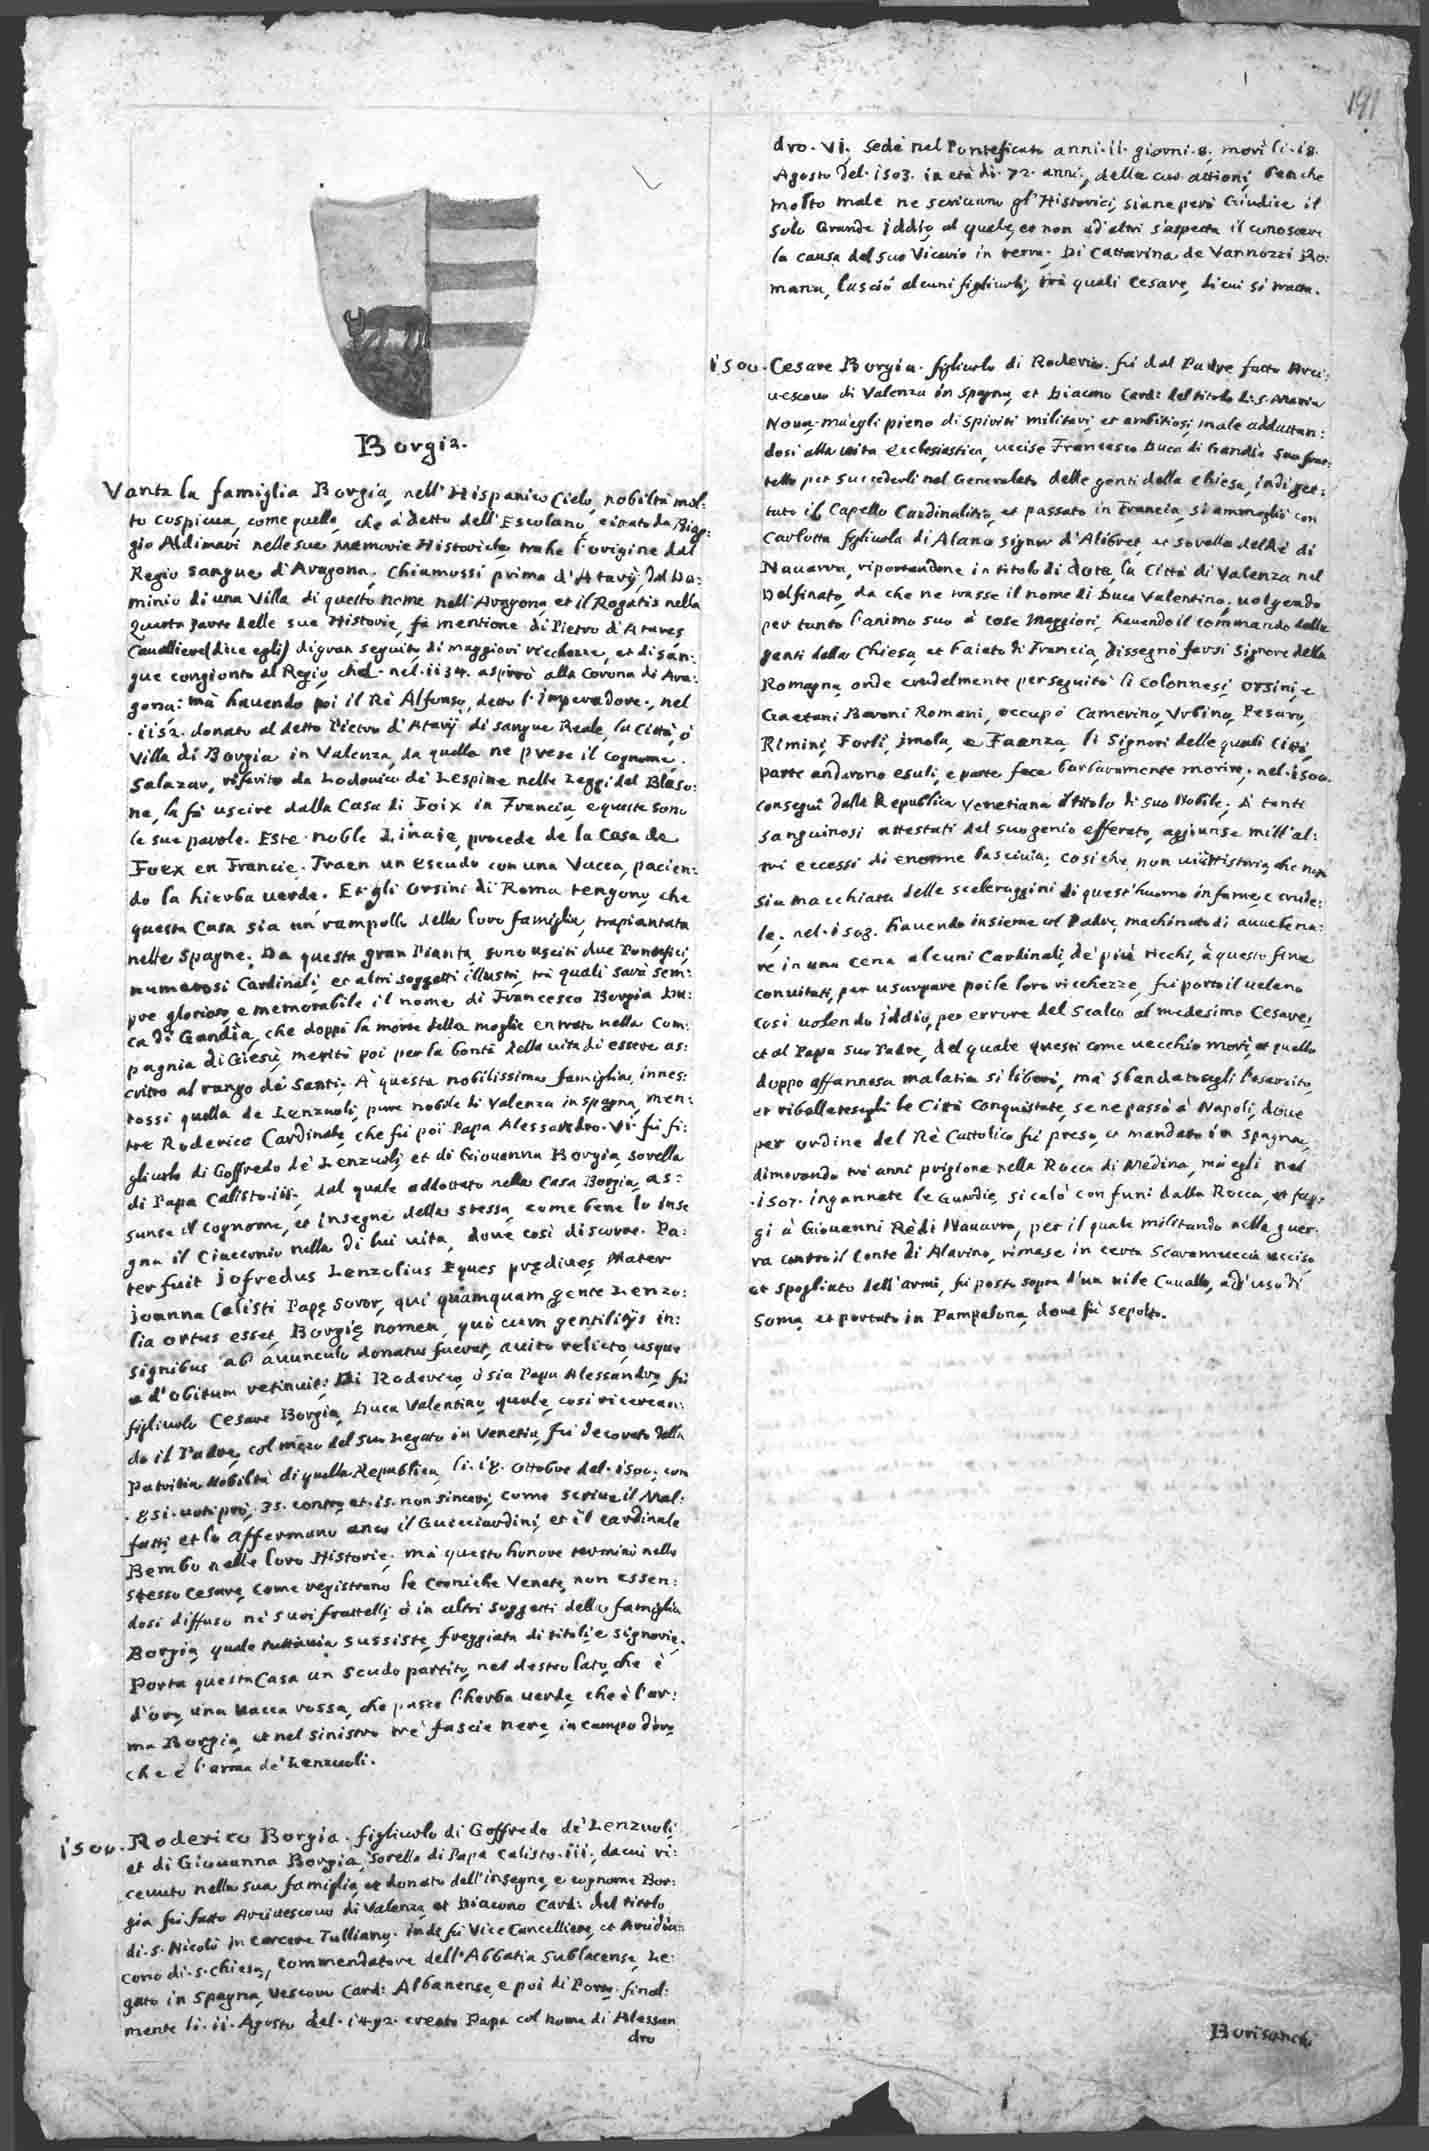 191
Borgia.
Vanta la famiglia Borgia, nell'Hispanico Cielo, nobiltà mol:
to cospicua, come quella, che à detto dell'Escolano, citato da Biag:
gio Aldimari nelle sue Memorie Historiche, trahe l'origine dal
Regio sangue d'Aragona. Chiamossi prima d'Atarij, dal Do:
minio di una Villa di questo nome nell'Aragona et il Rogatis nella
Quarta parte delle sue Historie, fà mentione di Pietro d'Atares
Cavalliere (dice egli) di gran seguito di maggiori ricchezze, et di san:
gue congionto al Regio, che nel .1134. aspirò alla Corona di Ara:
gona: mà havendo poi il Rè Alfonso, detto l'Imperadore, nel
.1152. donato al detto Pietro d'Atarij di sangue Reale, la Città, ò
Villa di Borgia in Valenza, da quella ne prese il cognome.
Salazar, riferito da Lodovico de Lespine nelle Leggi del Blaso:
ne, la fà uscire dalla Casa di Foix in Francia, e queste sono
le sue parole. Este noble Linaje, procede de la Casa de
Foex en Francie. Traen un escudo con una Vacca, pacien:
do la hierba verde. Et gli Orsini di Roma tengono, che
questa Casa sia un rampollo della loro famiglia, trapiantata
nelle Spagne. Da questa gran Pianta, sono usciti due Pontefici,
numerosi Cardinali, et altri soggetti illustri, trà quali sarà sem:
pre glorioso, e memorabile il nome di Francesco Borgia Du:
ca di Gandia, che doppò la morte della moglie entrato nella Com:
pagnia di Giesù, meritò poi per la bontà della vita di essere as:
critto al rango de' Santi. A questa nobilissima famiglia, innes:
tossi quella de Lenzuoli, pure nobile di Valenza in Spagna, men:
tre Roderico Cardinale, che fù poi Papa Alessandro .VI. fù fi:
gliuolo di Goffredo de' Lenzuoli, et di Giovanna Borgia, sorella
di Papa Calisto .iii., dal quale addottato nella Casa Borgia, as:
sunse il cognome, et insegne della stessa, come bene lo inse
gna il Ciacconio nella di lui vita, dove così discorre. Pa:
ter fuit Jofredus Lenzolius Eques prędives, Mater
Joanna Calisti Papę soror, qui quamquam gente Lenzo:
lia ortus esset, Borgię nomen, quò cum gentilitijs in:
signibus ab avunculo donatus fuerat, avito relicto, usque
ad'obitum retinuit: Di Roderico, ò sia Papa Alessandro, fù
figliuolo Cesare Borgia, Duca Valentino, quale, così ricercan:
do il Padre, col mezo del suo Legato in Venetia, fù decorato della
Patritia Nobiltà di quella Republica, li .18. Ottobre del .1500. con
.851. voti prò, 35. contro, et .15. non sinceri, come scrive il Mal:
fatti, et lo affermano anco il Guicciardini, et il Cardinale
Bembo nelle loro Historie, mà questo honore terminò nello
stesso Cesare, come registrano le Croniche Venete, non essen:
dosi diffuso nè suoi frattelli, ò in altri soggetti della famiglia
Borgia, quale tuttavia sussiste, freggiata di titoli, e signorie.
Porta questa Casa un scudo partito, nel destro lato, che è
d'oro, una vacca rossa, che pasce l'herba verde, che è l'ar:
ma Borgia, et nel sinistro trè fascie nere, in campo d'oro
che è l'arma de' Lenzuoli.
1500. Roderico Borgia. figliuolo di Goffredo de' Lenzuoli,
et di Giovanna Borgia, sorella di Papa Calisto .iii., da cui ri:
cevuto nella sua famiglia, et donato dell'insegne, e cognome Bor:
gia fù fatto Arcivescovo di Valenza, et Diacono Card: del titolo
di .S. Nicolò in Carcere Tulliano, indi fù Vice Cancelliere, et Arcidia:
cono di .S. Chiesa, commendatore dell'Abbatia Sublacense, Le:
gato in Spagna, Vescovo Card: Albanense, e poi di Porto, final:
mente li .11. Agosto del .1492. creato Papa col nome di Alessan
dro
dro .VI. sedè nel Pontificato anni .11. giorni .8. morì li .18.
Agosto del .1503. in età di .72. anni, della cui attioni, benche
molto male ne scrivano gl'Historici, siane però Giudice il
solo Grande Iddio, al quale, et non ad'altri s'aspetta il conoscere
la causa del suo Vicario in terra. Di Cattarina de Vannozzi Ro:
mana, lasciò alcuni figliuoli, trà quali Cesare, di cui si tratta.
1500. Cesare Borgia. figliuolo di Roderico. fù dal Padre fatto Arci:
vescovo di Valenza in Spagna, et Diacono Card: del titolo di .S. Maria
Nova, mà egli pieno di spiriti militari, et ambitiosi, male addattan:
dosi alla vita Ecclesiastica, uccise Francesco Duca di Gandia suo frat:
tello per succederli nel Generalato delle genti della Chiesa, indi get:
tato il Capello Cardinalitio, et passato in Francia, si ammogliò con
Carlotta figliuola di Alano signor d'Alibret, et sorella del Rè di
Navarra, riportandone in titolo di dote, la Città di Valenza nel
Dolfinato, da che ne trasse il nome di Duca Valentino, volgendo
per tanto l'animo suo à cose maggiori, havendo il commando delle
genti della Chiesa, et l'aiuto di Francia, dissegnò farsi signore della
Romagna, onde crudelmente perseguitò li Colonnesi, Orsini, e
Gaetani Baroni Romani, occupò Camerino, Urbino, Pesaro,
Rimini, Forlì, Imola, e Faenza, li Signori delle quali Città
parte andarono esuli, e parte fece barbaramente morire, nel .1500.
conseguì dalla Republica Venetiana il titolo di suo Nobile. A tanti
sanguinosi attestati del suo genio efferato, aggiunse mill'al:
tri eccessi di enorme lascivia, così che, non vi è Historia, che non
sia macchiata delle sceleraggini di quest'huomo infame, e crude:
le, nel .1503. havendo insieme col Padre, machinato di avvelena:
re in una cena alcuni Cardinali, de' più ricchi, à questo fine
convitati, per usurpare poi le loro ricchezze, fù porto il veleno
così volendo Iddio, per errore del Scalco al medesimo Cesare,
et al Papa suo Padre, del quale questi come vecchio morì, et quello
doppo affannosa malatia si liberò, mà sbandatosegli l'esercito,
et ribellatesegli le Città conquistate, se ne passò à Napoli, dove
per ordine del Rè Cattolico fù preso, et mandato in Spagna,
dimorando trè anni prigione nella Rocca di Medina, mà egli nel
.1507. ingannate le Guardie, si calò con funi dalla Rocca, et fug:
gì à Giovanni Rè di Navarra, per il quale militando nella guer:
ra contro il Conte di Alarino, rimase in certa Scaramuccia ucciso,
et spogliato dell'armi, fù posto sopra d'un vile Cavallo, ad'uso di
Soma, et portato in Pampalona, dove fù sepolto.